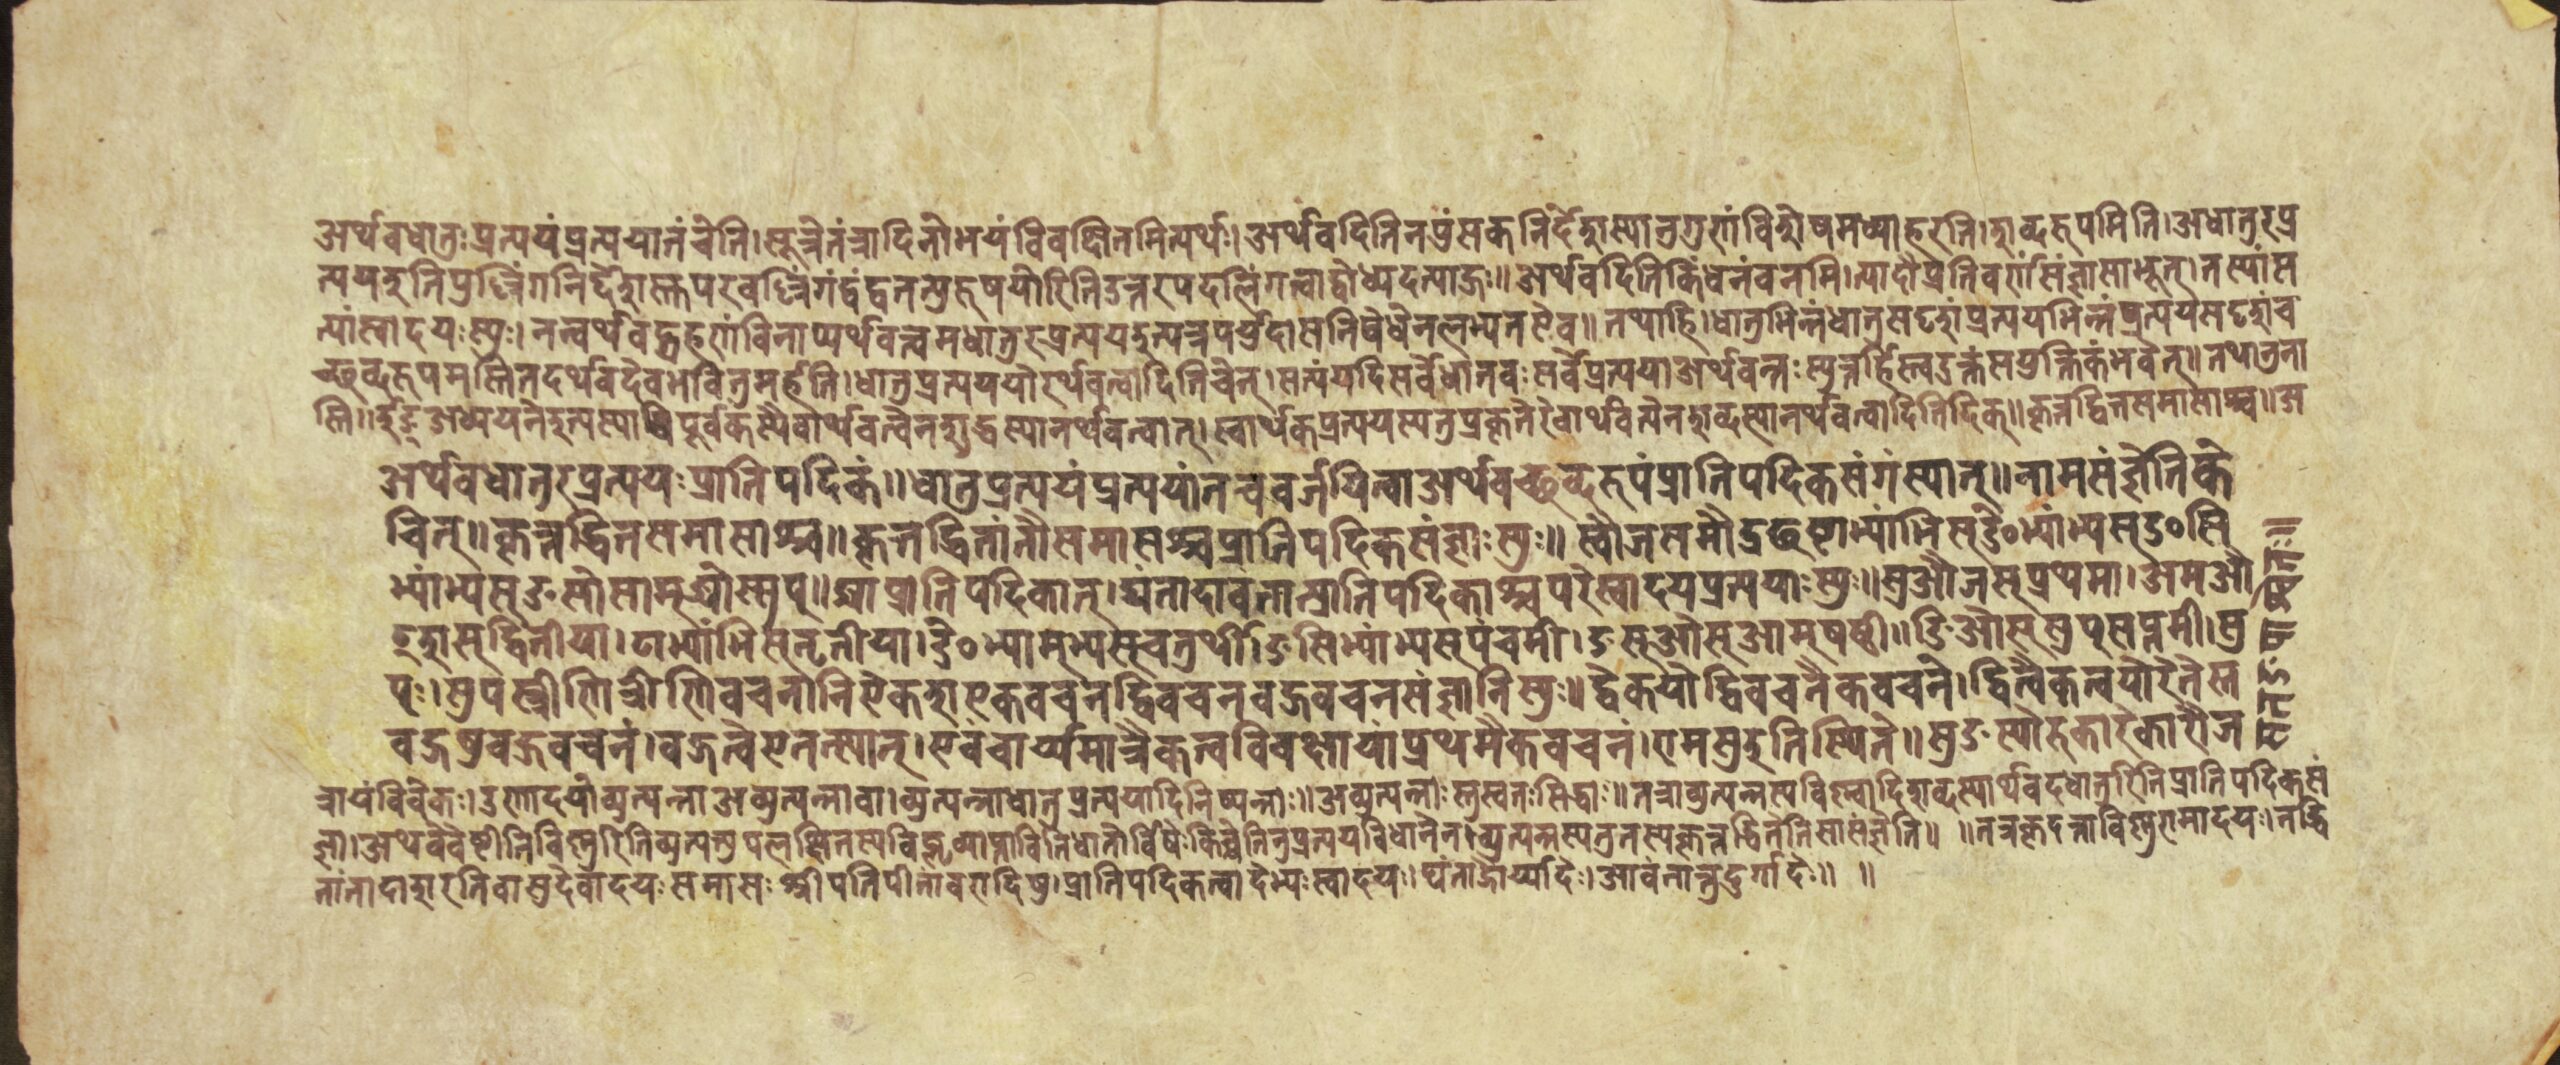 अर्थवधातुःप्रत्ययंप्रत्ययानंचेति।सूत्रेतंत्रादिनोभयंविवक्षितमित्यर्थः।अर्थवदितिनपुंसकनिर्देशस्यानुगुणंविशेषमध्याहरति।शब्दरूपमिति।अधातुरप्र
त्ययइतिपुल्लिंगनिर्देशस्तुपरवल्लिंगंद्वंद्वतत्पुरुषयोरितिउत्तरपदलिंगत्वाद्बोध्यइत्याहुः॥अर्थवदितिकिंधनंवनमि।त्यादौप्रतिवर्णंसंज्ञामाभूत्।तस्यांस
त्यांस्वादयःस्युः।नन्वर्थवद्ग्रहणंविनाप्यर्थवत्त्वमधातुरप्रत्ययइत्यत्रपर्युदासनिषेधेनलभ्यतएव॥तथाहि।धातुभिन्नंधातुसदृशंप्रत्ययभिन्नंप्रत्ययसदृशंच
च्छब्दरूपमस्तितदर्थवदेवभवितुमर्हति।धातुप्रत्यययोरर्थवत्वादितिचेत्।सत्यंयदिसर्वेधातवःसर्वेप्रत्ययाअर्थवन्तःस्युस्तर्हित्वदुक्तंसयुक्तिकंभवेत्॥तथातुना
स्ति॥इङ्अध्ययनेइत्यस्याधिपूर्वकस्यैवार्थवत्वेनशुद्धस्यानर्थवत्वात्।स्वार्थकप्रत्ययस्यतुप्रकृतेरेवार्थवत्वेनशब्दस्यानर्थवत्वादितिदिक्॥कृत्तद्धितसमासाश्च॥अ
अर्थवधातुरप्रत्ययःप्रातिपदिकं॥धातुप्रत्ययंप्रत्ययांतंचवर्जयित्वाअर्थवच्छब्दरूपंप्रातिपदिकसंगंस्यात्॥नामसंज्ञेतिके
चित्॥कृत्तद्धितसमासाश्च॥कृत्तद्धितांतौसमासश्चप्रातिपदिकसंज्ञाःस्युः॥स्वौजसमौट्छष्टाभ्यांभिस्ङे०भ्यांभ्यसङ०सि
भ्यांभ्यसङसोसाम्ङ्योस्सुप्॥ङ्याप्प्रातिपदिकात्।ङ्यंतादाबंतात्प्रातिपदिकाच्चपरेस्वादयप्रत्ययाःस्युः॥सुऔजस्प्रथमा।अमऔ
ट्शस्द्वितीया।टाभ्यांभिस्तृतीया।ङे०भ्याम्भ्यसचतुर्थी।ङसिभ्यांभ्यसपंचमी।ङस्ओस्आम्षष्ठी॥ङिओस्सुप्सप्तमी।सु
पः।सुपस्त्रीणित्रीणिवचनानिएकशएकवचनद्विवचनबहुवचनसंज्ञानिस्युः॥द्व्येकयोर्द्विवचनैकवचने।द्वित्वैकत्वयोरेतेस्त
बहुषुबहुवचनं।बहुत्वेएतत्स्यात्।एवंचार्थ्यमात्रैकत्वविवक्षायांप्रथमैकवचनं।रामसुइतिस्थिते॥सुङस्योरुकारेकारौज
त्रायंविवेकः।उणादयोव्युत्पन्नाअव्युत्पन्नावा।व्युत्पन्नाधातुप्रत्ययादिनिष्पन्नाः॥अव्युत्पन्नाःस्तुस्वतःसिद्धाः॥तत्राव्युत्पन्नस्यविष्ण्वादिशब्दस्यार्थवदधातुरितिप्रातिपदिकसं
ज्ञा।अथवेवेष्टीतिविष्णुरितिव्युत्पत्त्युपलक्षितस्यविष्लृव्याप्तावितिधातोर्विषेःकिच्चेतिनुप्रत्ययविधानेन।व्युत्पन्नस्यतुतस्यकृत्तद्धितेतिसासंज्ञेति॥ ॥तत्रकृदन्ताविष्णुरामादयः।तद्धि
तांतादाशरतिवासुदेवादयःसमासःश्रीपतिपीतांबरादिषु।प्रातिपदिकत्वादेभ्यःस्वादयः।ङ्यंताद्गौर्य्यादेः।आबंतात्तुदुर्गादेः॥ ॥